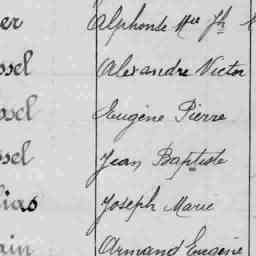 er Alphonse Mie Jh
ssel Alexandre Victor
ssel Eugène Pierre
ssel Jean Baptiste
lias Joseph Marie
ain Armand Eugène